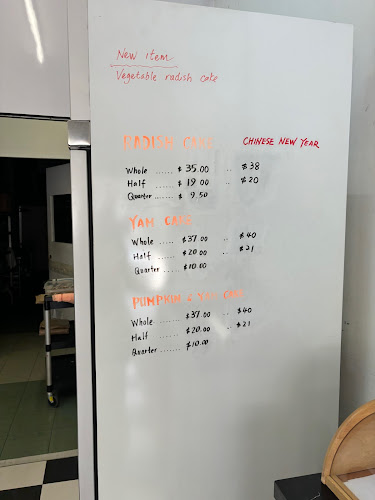 New item
Vegetable radish cake
RADISH CAKE CHINESE NEW YEAR
Whole ...... $ 35.00 .. $38
Half ...... $ 19.00 .. $20
Quarter ...... $ 9.50
YAM CAKE
Whole ...... $37.00 .. $40
Half ...... $20.00 .. $21
Quarter ...... $10.00
PUMPKIN & YAM CAKE
Whole ....... $37.00 .. $40
Half ....... $20.00 .. $21
Quarter ....... $10.00